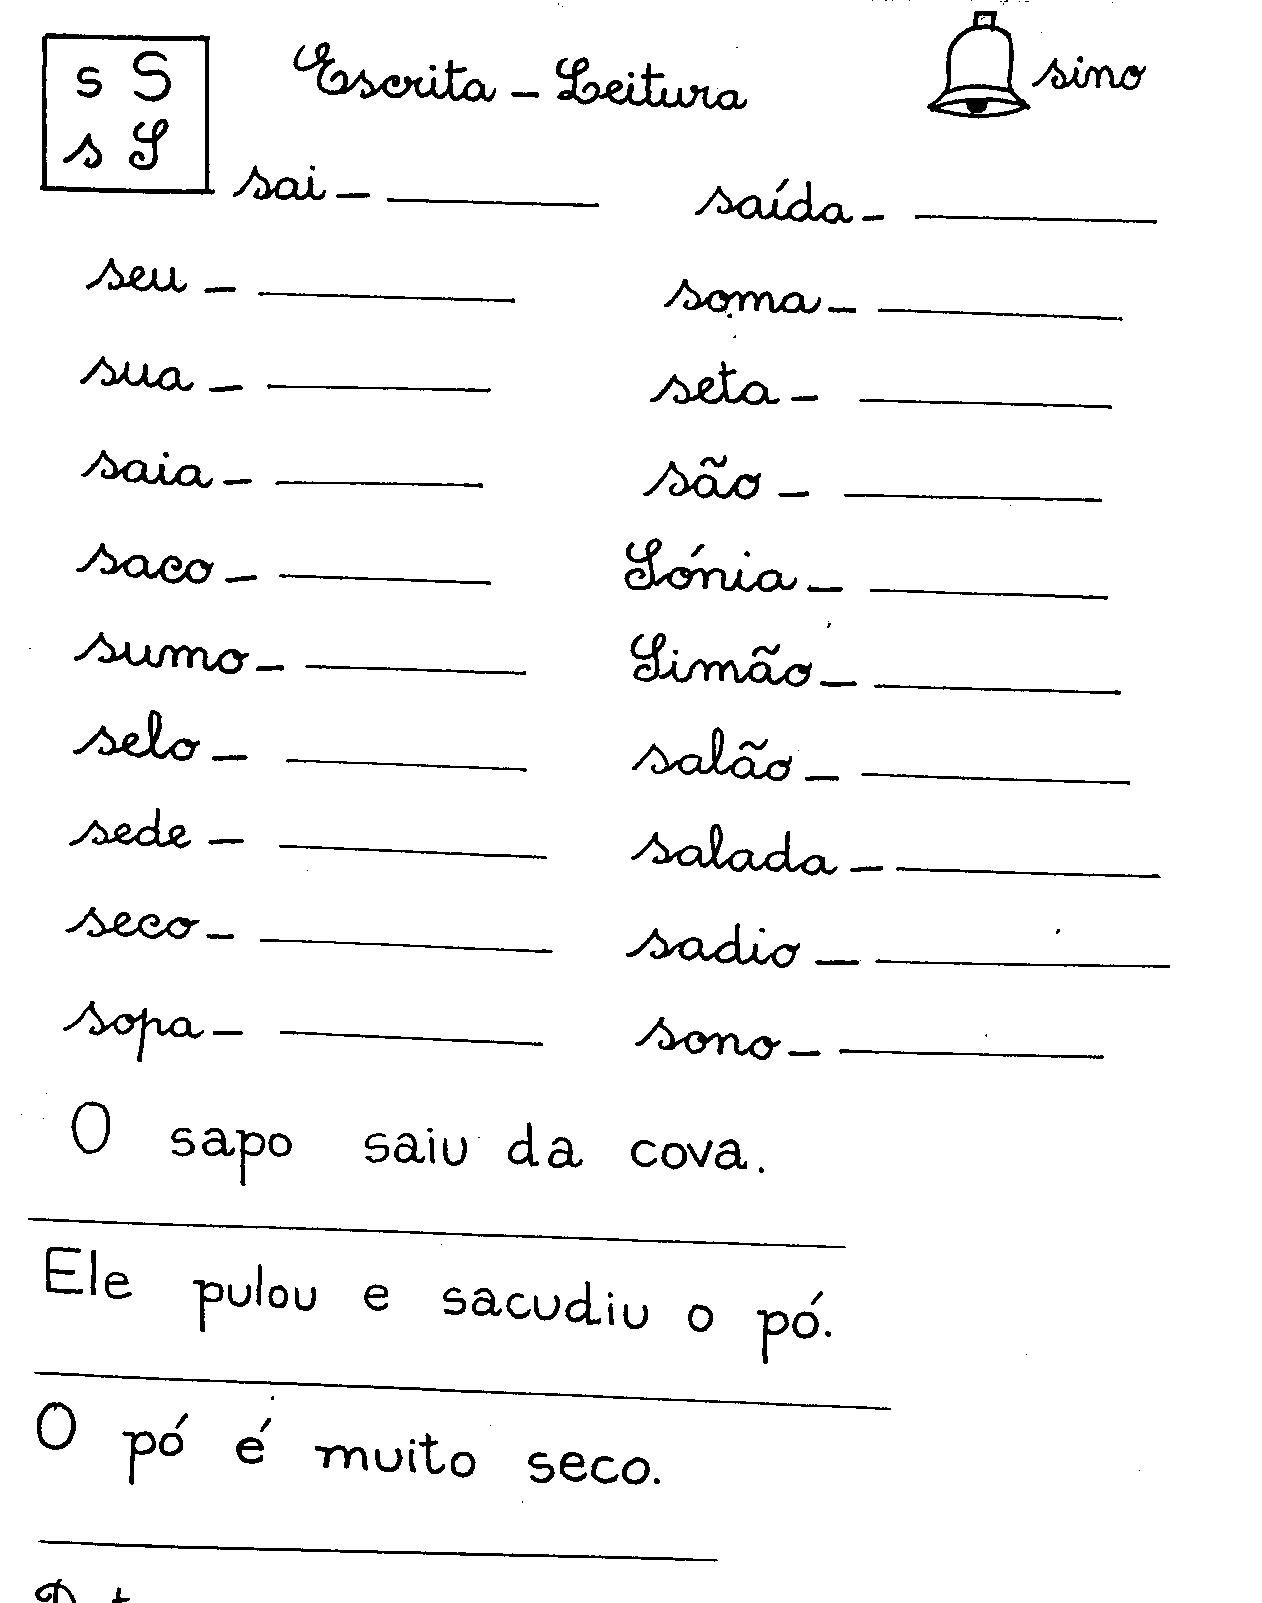 s S Escrita - Leitura sino
s S
sai - ________ saída - ________
seu - ________ soma - ________
sua - ________ seta - ________
saia - ________ são - ________
saco - ________ Sónia - ________
sumo - ________ Simão - ________
selo - ________ salão - ________
sede - ________ salada - ________
seco - ________ sadio - ________
sopa - ________ sono - ________
O sapo saiu da cova.
Ele pulou e sacudiu o pó.
O pó é muito seco.